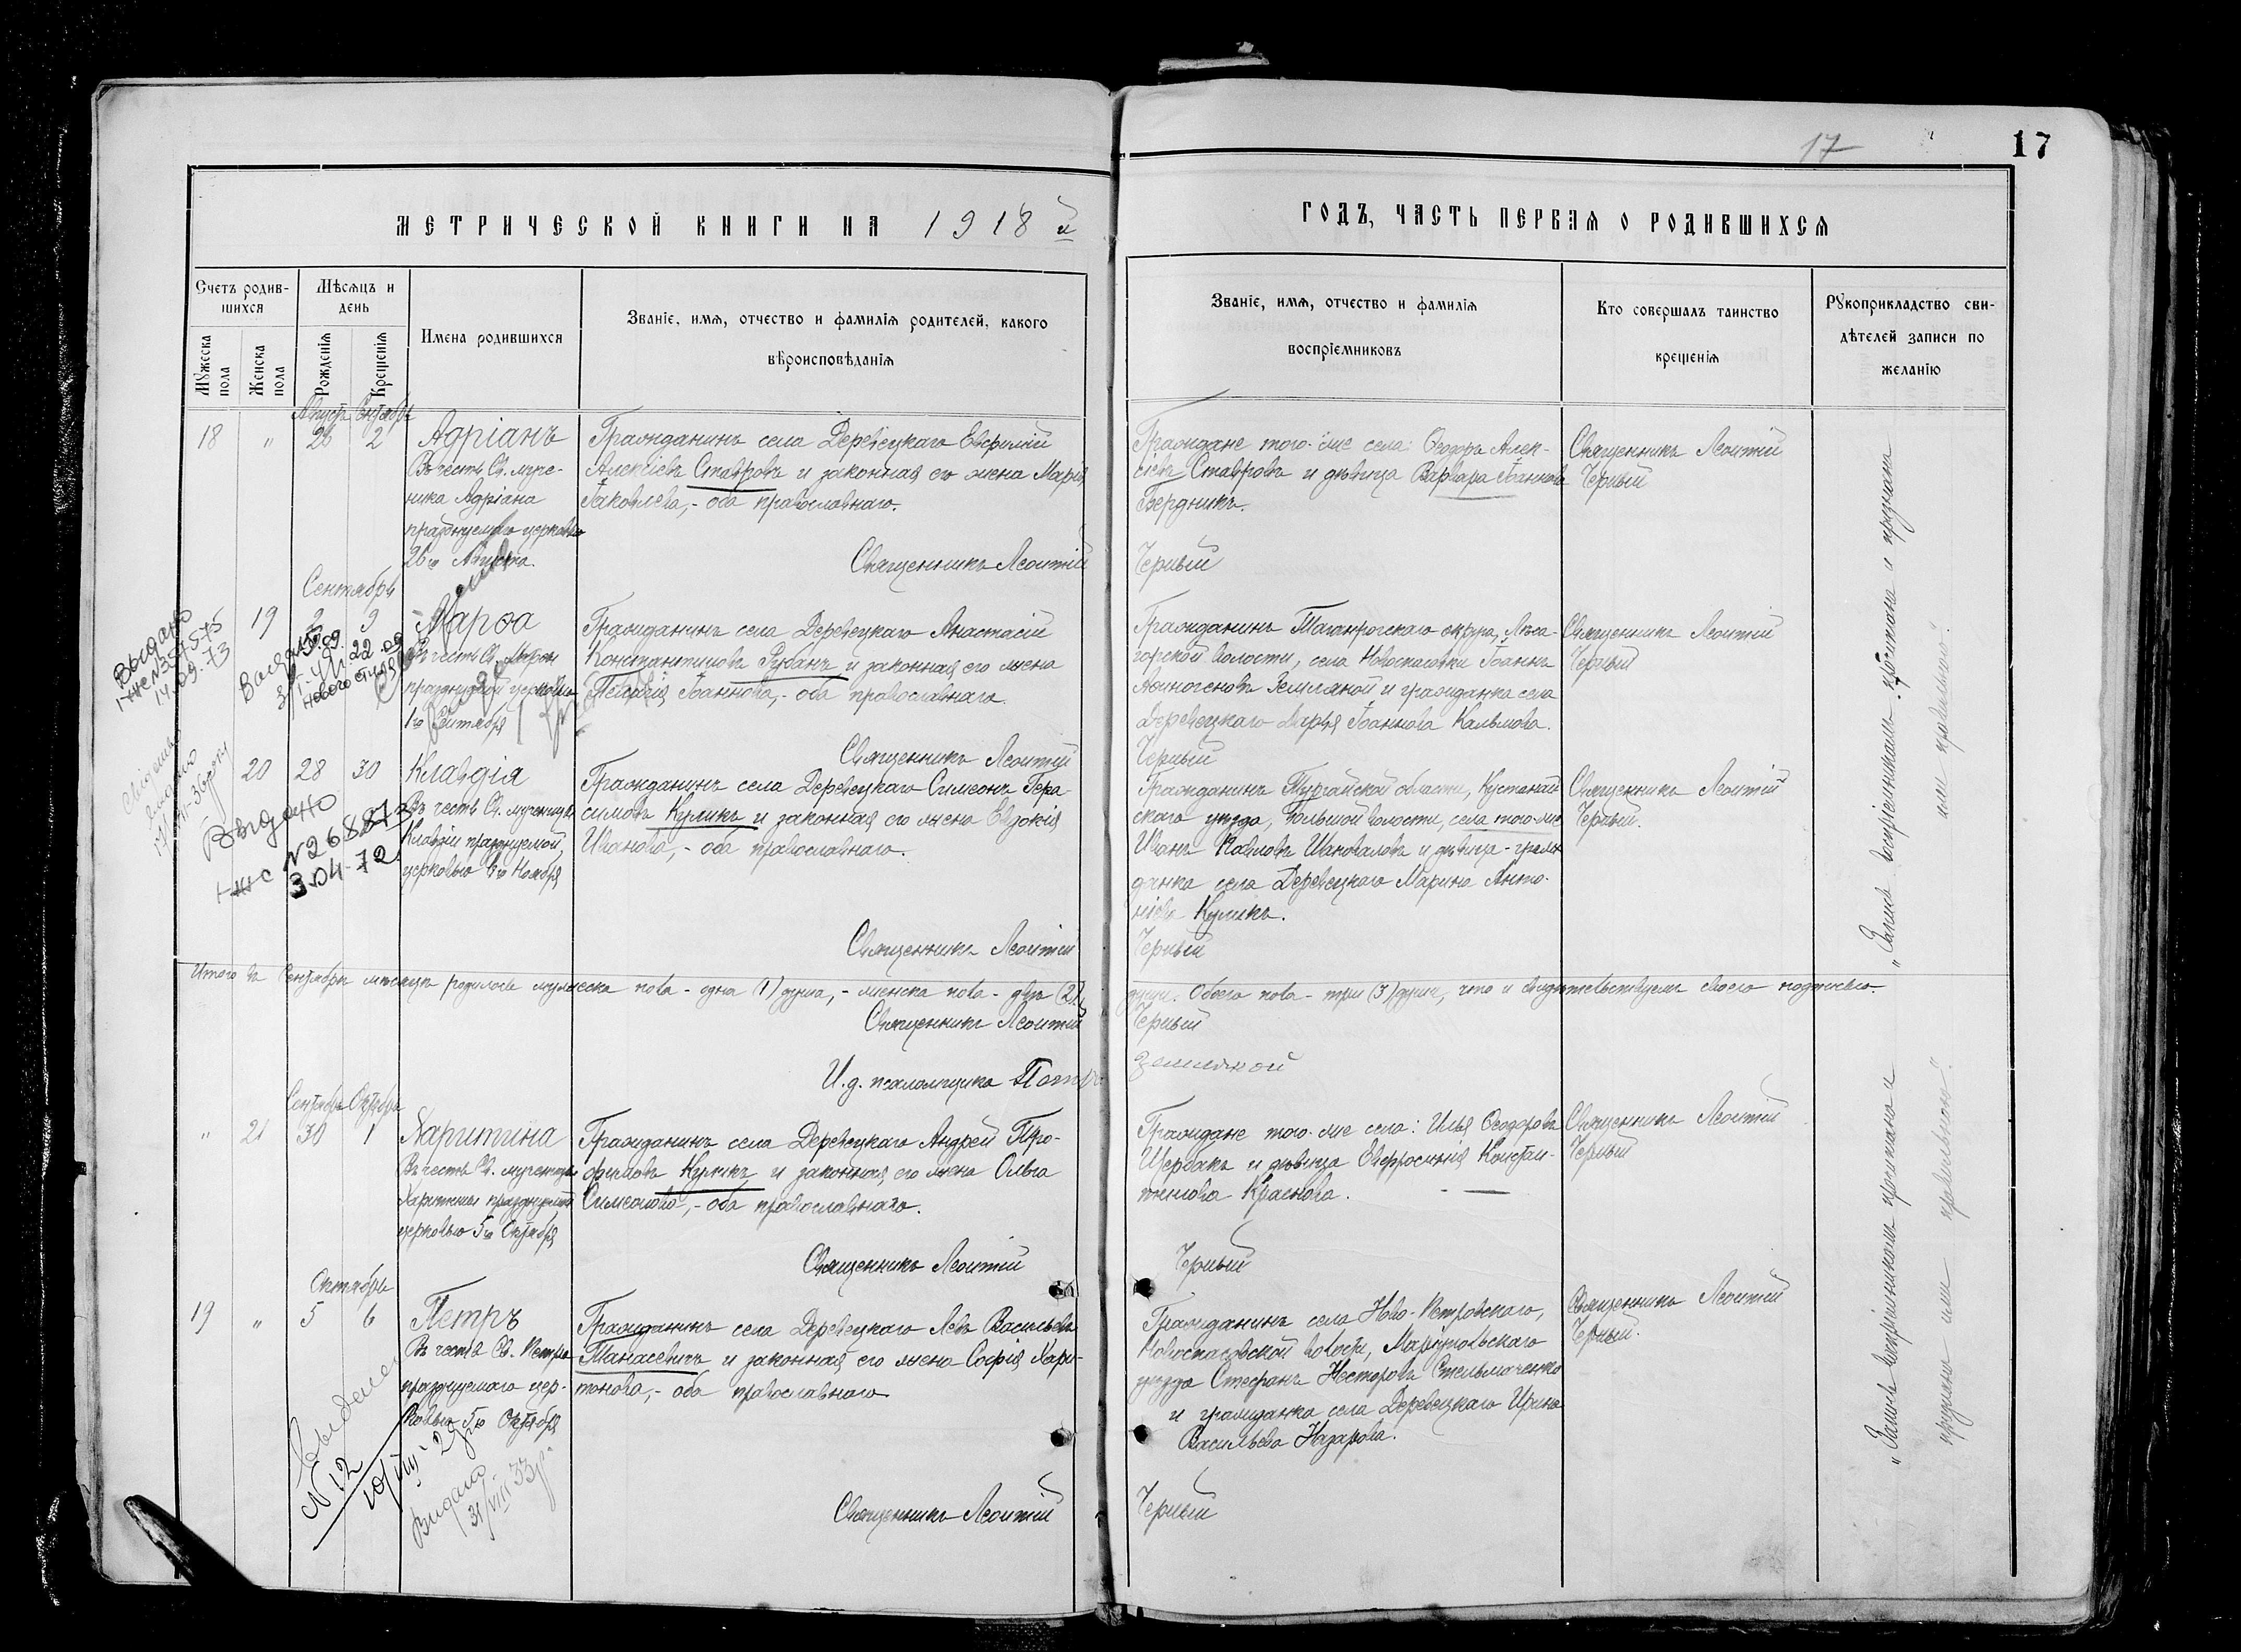 17
17
МЕТРИЧЕСКОЙ КНИГИ НА 1918й
ГОДЪ, ЧАСТЬ ПЕРВАЯ О РОДИВШИХСЯ
Счетъ родив-
шихся
Мужеска пола
Женска пола
Мѣсяцъ и
день
Рожденія
Крещенія
Имена родившихся
Званіе, имя, отчество и фамилія родителей, какого
вѣроисповѣданія
Званіе, имя, отчество и фамилія
воспріемниковъ
Кто совершалъ таинство
крещенія
Рукоприкладство сви-
дѣтелей записи по
желанію
Августъ Сентябрь
18 " 26 2
Адріанъ
Въ честь Св. муче-
ника Адріана
празднуемаго церковью
26го Августа.
Гражданинъ села Деревецкаго Евфимій
Алексіевъ Ставровъ и законная его жена Марія
Іаковлева, - оба православнаго.
Священникъ Леонтій
Граждане того-же села: Ѳеодоръ Алек-
сіевъ Ставровъ и дѣвица Варвара Іоаннова
Бердникъ.
Черный
Священникъ Леонтій
Черный
Сентябрь
19 9
Марѳа
Въ честь Св.
празднуемой церковью
1го Сентября
Гражданинъ села Деревецкаго Анастасій
Константиновъ Рубанъ и законная его жена
Пелагія Іоаннова, - оба православнаго.
Священникъ Леонтій
Гражданинъ Таганрогскаго округа,
горской волости, села Новоспасовки Іоаннъ
Аѳиногеновъ Земляной и гражданка села
Деревецкаго Марья Іоаннова
Черный
Священникъ Леонтій
Черный
Выдано
14.09.73
Выдано
нового стиля
20 28 30
Клавдія
Въ честь Св. мученицы
Клавдіи празднуемой
церковью 6го Ноября
Гражданинъ села Деревецкаго Симеонъ Гера-
симовъ Куликъ и законная его жена Евдокія
Иванова, - оба православнаго.
Священникъ Леонтій
Гражданинъ Тургайской области, Кустанай-
скаго уѣзда, Большой волости, села того-же
Иванъ Павловъ Шаповаловъ и дѣвица - граж-
данка села Деревецкаго Марина Анто-
ніева Куликъ.
Черный
Священникъ Леонтій
Черный.
Выдано
3-04-72
Итого въ Сентябрѣ мѣсяцѣ родилось мужеска пола - одна (1) душа, - женска пола - двѣ (2)
души. Обоего пола - три (3) души, что и свидѣтельствуемъ своею подписью.
Священникъ Леонтій
Черный
И.д. псаломщика Петръ
Земляной
Сентябрь Октябрь
" 21 30 1
Харитина
Въ честь Св. мученицы
Харитины празднуемой
церковью 5го Октября
Гражданинъ села Деревецкаго Андрей Тро-
фимовъ Куликъ и законная его жена Ольга
Симеонова, - оба православнаго.
Священникъ Леонтій
Граждане того-же села: Илья Ѳеодоровъ
Щербакъ и дѣвица Евфросинія Констан-
тинова Краснова.
Черный
Священникъ Леонтій
Черный
Октябрь
19 " 5 6
Петръ
Въ честь Св. Петра
празднуемаго цер-
ковью 5го Октября
Гражданинъ села Деревецкаго Левъ Васильевъ
Танасевичъ и законная его жена Софія Хари-
тонова, - оба православнаго
Священникъ Леонтій
Гражданинъ села Ново-Петровскаго,
Новоспасовской волости, Маріупольскаго
уѣзда Стефанъ Несторовъ Стельмаченко
и гражданка села Деревецкаго Ирина
Васильева Назарова.
Черный
Священникъ Леонтій
Черный.
N 12
10/VIII 29
Выдано
31/VIII 33р.
"Запись воспріемникамъ прочитана и признана
ими правильною".
"Запись воспріемникамъ прочитана и
признана ими правильною".